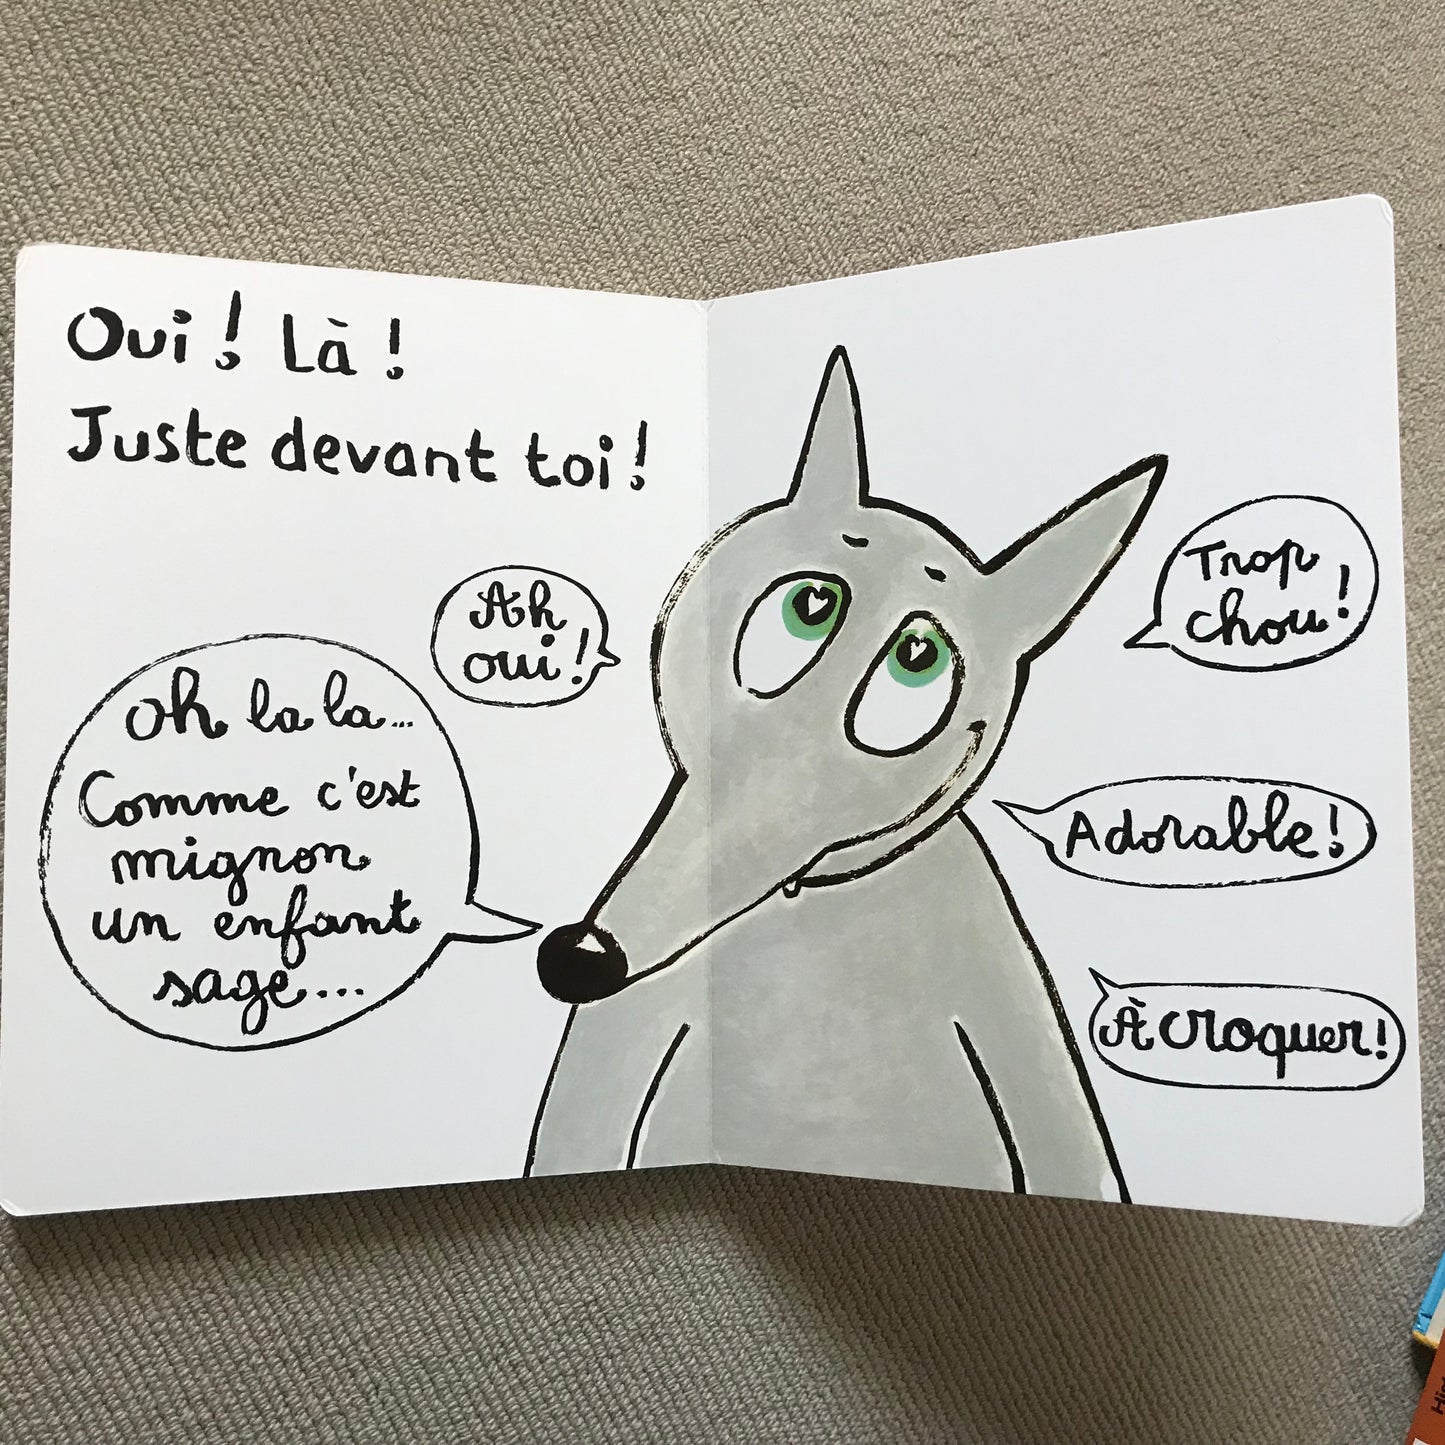 Oui ! Là !
Juste devant toi !
Ah
oui !
oh la la...
Comme c'est
mignon
un enfant
sage...
Trop
chou !
Adorable !
À croquer !